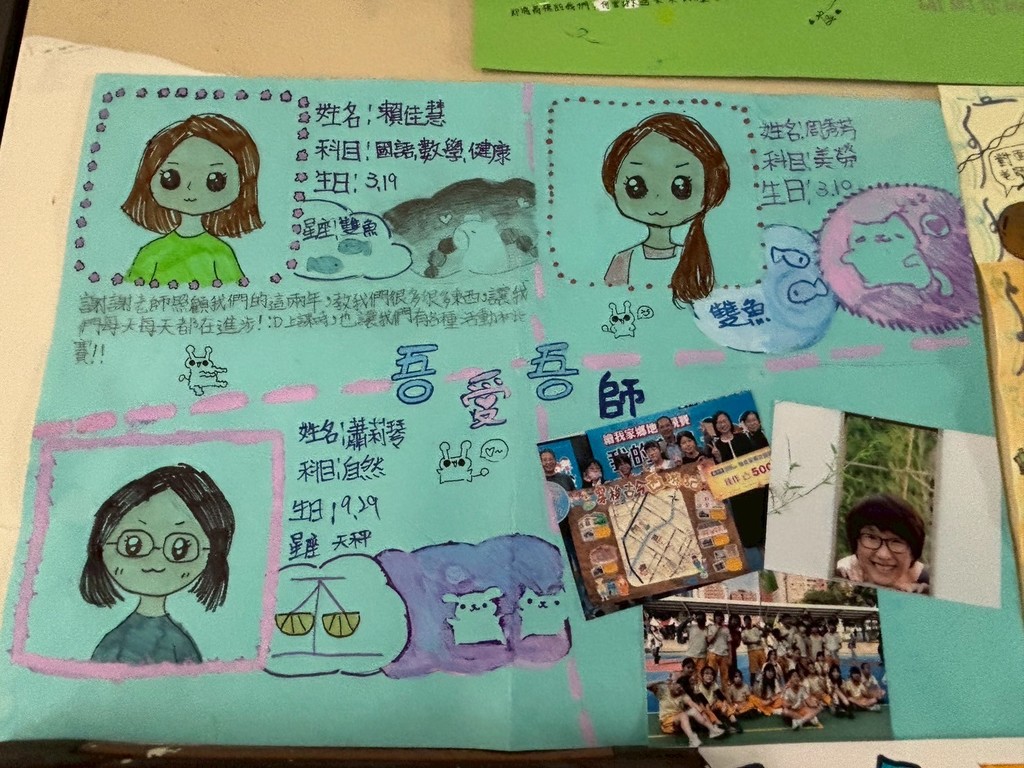 姓名:賴佳慧
科目:國語,數學,健康
生日:3,19
星座:雙魚
謝謝老師照顧我們的這兩年,教我們很多很多東西,讓我
們每天每天都在進步!:D上課時,也讓我們有各種活動和比
賽!!
姓名:周秀芳
科目:美勞
生日:3.10
雙魚
吾愛吾師
姓名:蕭莉琴
科目:自然
生日:9,29
星座 天秤
繪我家鄉地